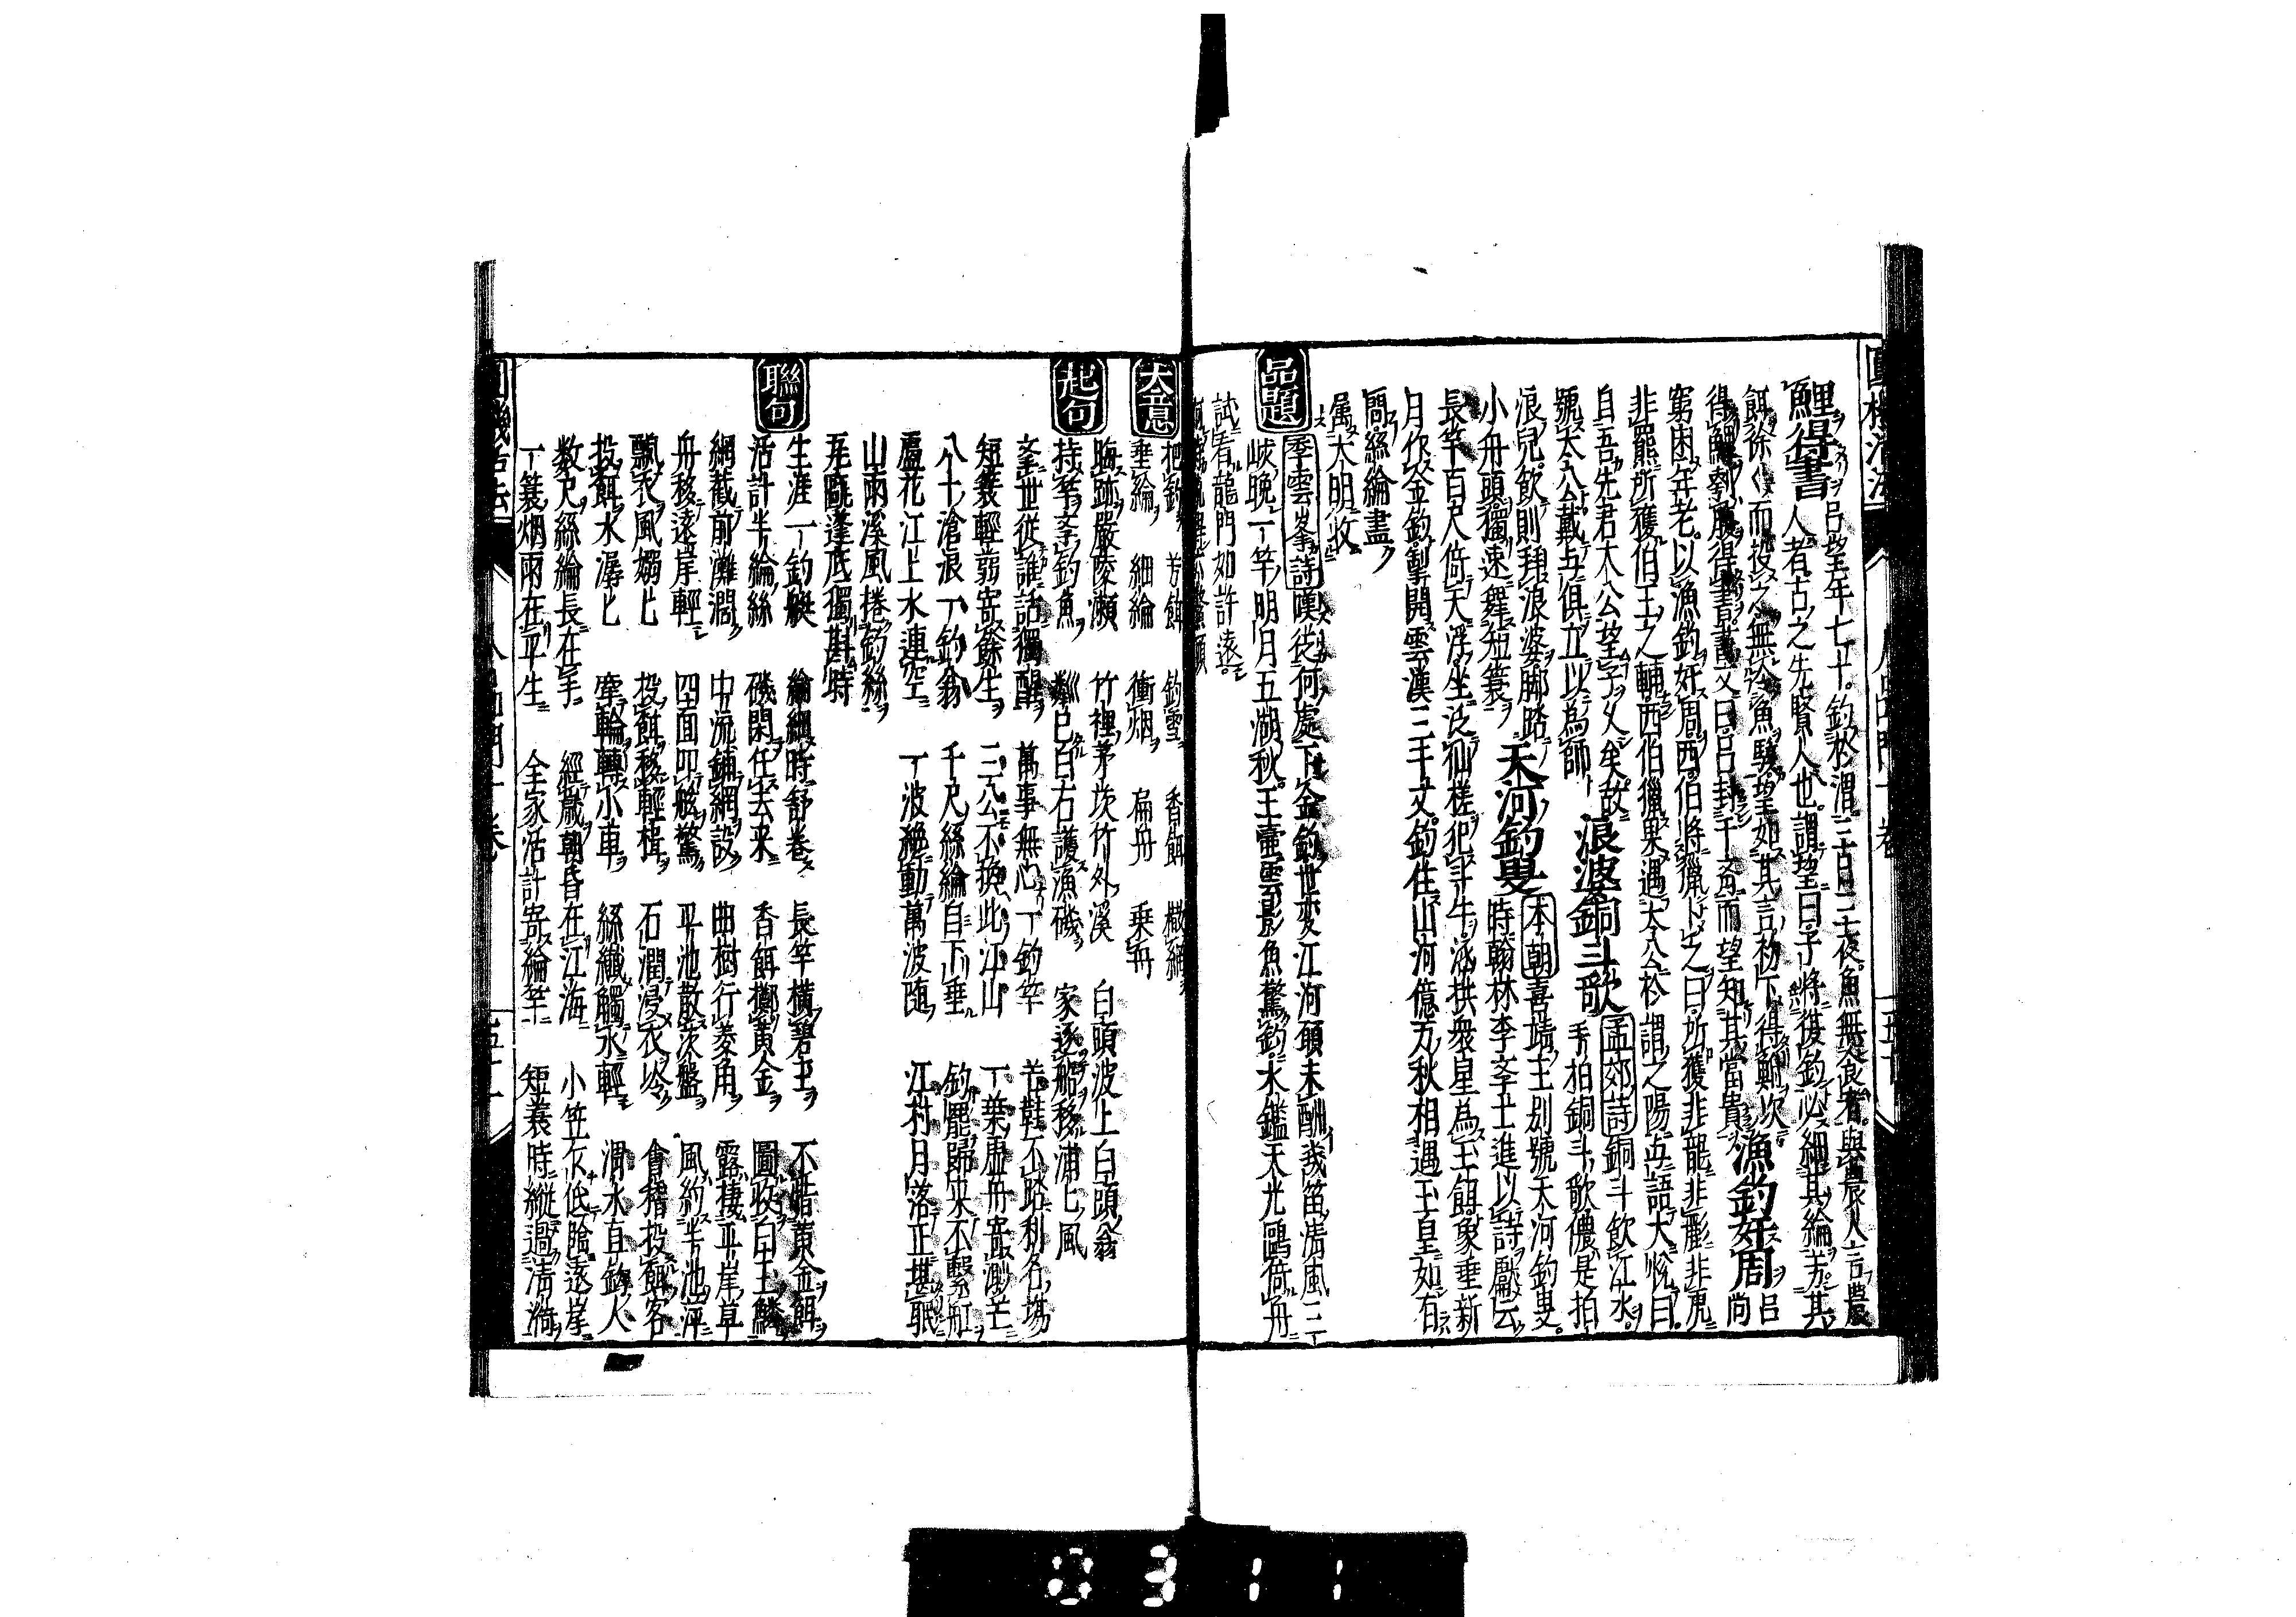 鯉得書 呂望年七十釣於渭三日三夜魚無食者與農人言農
人者古之先賢人也謂望曰子將復釣必細其綸芳其
餌徐々而投之無令魚駭望如其言初下得鮒次
得鯉刳腹得書書文曰呂封于齊而望知其當貴 漁釣奸周 呂尚
窮困年老以漁釣奸周西伯將獵卜之曰所獲非龍非彨非虎
非羆所獲伯王之輔西伯獵果遇太公於謂之陽与語大悅曰
自吾先君太公望字久矣故
號太公載与俱立以為師 浪波銅斗歌 孟郊詩銅斗飲江水
手拍銅斗歌儂是拍
浪兒飲則拜浪婆脚踏
小舟頭獨速舞短蓑 天河釣叟 本朝喜靖王別號天河釣叟
時翰林李学士進以詩獻云
長竿百尺倚天浮坐泛仙槎犯斗牛派拱衆星為玉餌象垂新
月作金釣掣開雲漢三千丈釣住山河億万秋相遇玉皇如右
問絲綸盡
属大明收
品題 季雲峯詩嘆從何處下金釣世変江河頭未酬我笛清風三
峽晚一竿明月五湖秋玉壷雲影魚驚釣水鑑天光鷗倚舟
試看龍門如許遠
大意 把釣 芳餌 釣雪 香餌 檥網
垂綸 細綸 衝烟 扁舟 乗舟
起句 晦跡嚴陵瀬 竹裡茅坎竹外溪 白頭波上白頭翁
持竿李釣魚 巳日右護漁磯 家逐船移浦匕風
挙世從誰話獨醒 萬事無心一釣竿 芒鞋不踏利名塲
短蓑輕蒻寄餘生 三公不換此江山 一葉虚舟寄渺茫
八十滄浪一釣翁 千尺絲綸自下垂 釣罷歸来不繫舡
蘆花江上水連空 一波絶動萬波随 江村月落正堪眠
山雨溪風捲釣絲
瓦甌蓬底獨斟時
聯句 生涯一釣艇 綸細時舒卷 長竿横碧玉 不惜黄金餌
活計半綸絲 磯閑任去来 香餌擲黄金 圖收白玉鱗
網截前灘濶 中流鋪網設 曲樹行菱角 露棲平岸草
舟移遠岸輕 四面叩舷驚 平池散茨盤 風約半池萍
飄衣風嫋匕 投餌移輕楫 石潤浸衣冷 會稽投餌客
投餌水潺匕 摩輪轉小車 絲纖觸水輕 渭水直鉤人
数尺絲綸長在手 經歳朝昏在江海 小笠欠低隂遠崖
一簑烟雨在平生 全家活計寄綸竿 短蓑時縦過清漪